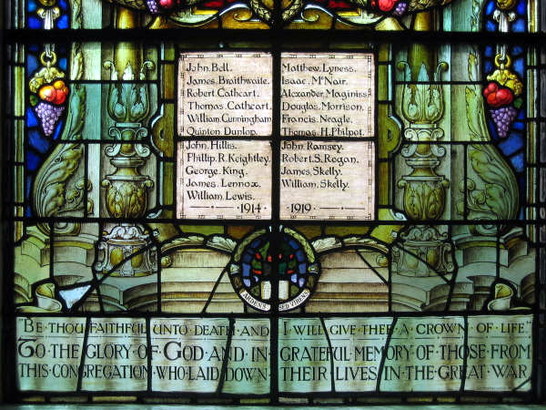 John Bell.
James Braithwaite.
Robert Cathcart.
Thomas Cathcart.
William Cunningham.
Quinton Dunlop.
John Hillis.
Phillip R. Keightley.
George King.
James Lennox.
William Lewis.
Matthew Lyness.
Isaac McNair.
Alexander Maginiss.
Douglas Morrison.
Francis Neagle.
Thomas H. Philpot.
John Ramsey.
Robert S. Rogan.
James Skelly.
William Skelly.
1914 1919
ARDENS SED VIRENS
"BE THOU FAITHFUL UNTO DEATH AND I WILL GIVE THEE A CROWN OF LIFE."
TO THE GLORY OF GOD AND IN GRATEFUL MEMORY OF THOSE FROM
THIS CONGREGATION WHO LAID DOWN THEIR LIVES IN THE GREAT WAR